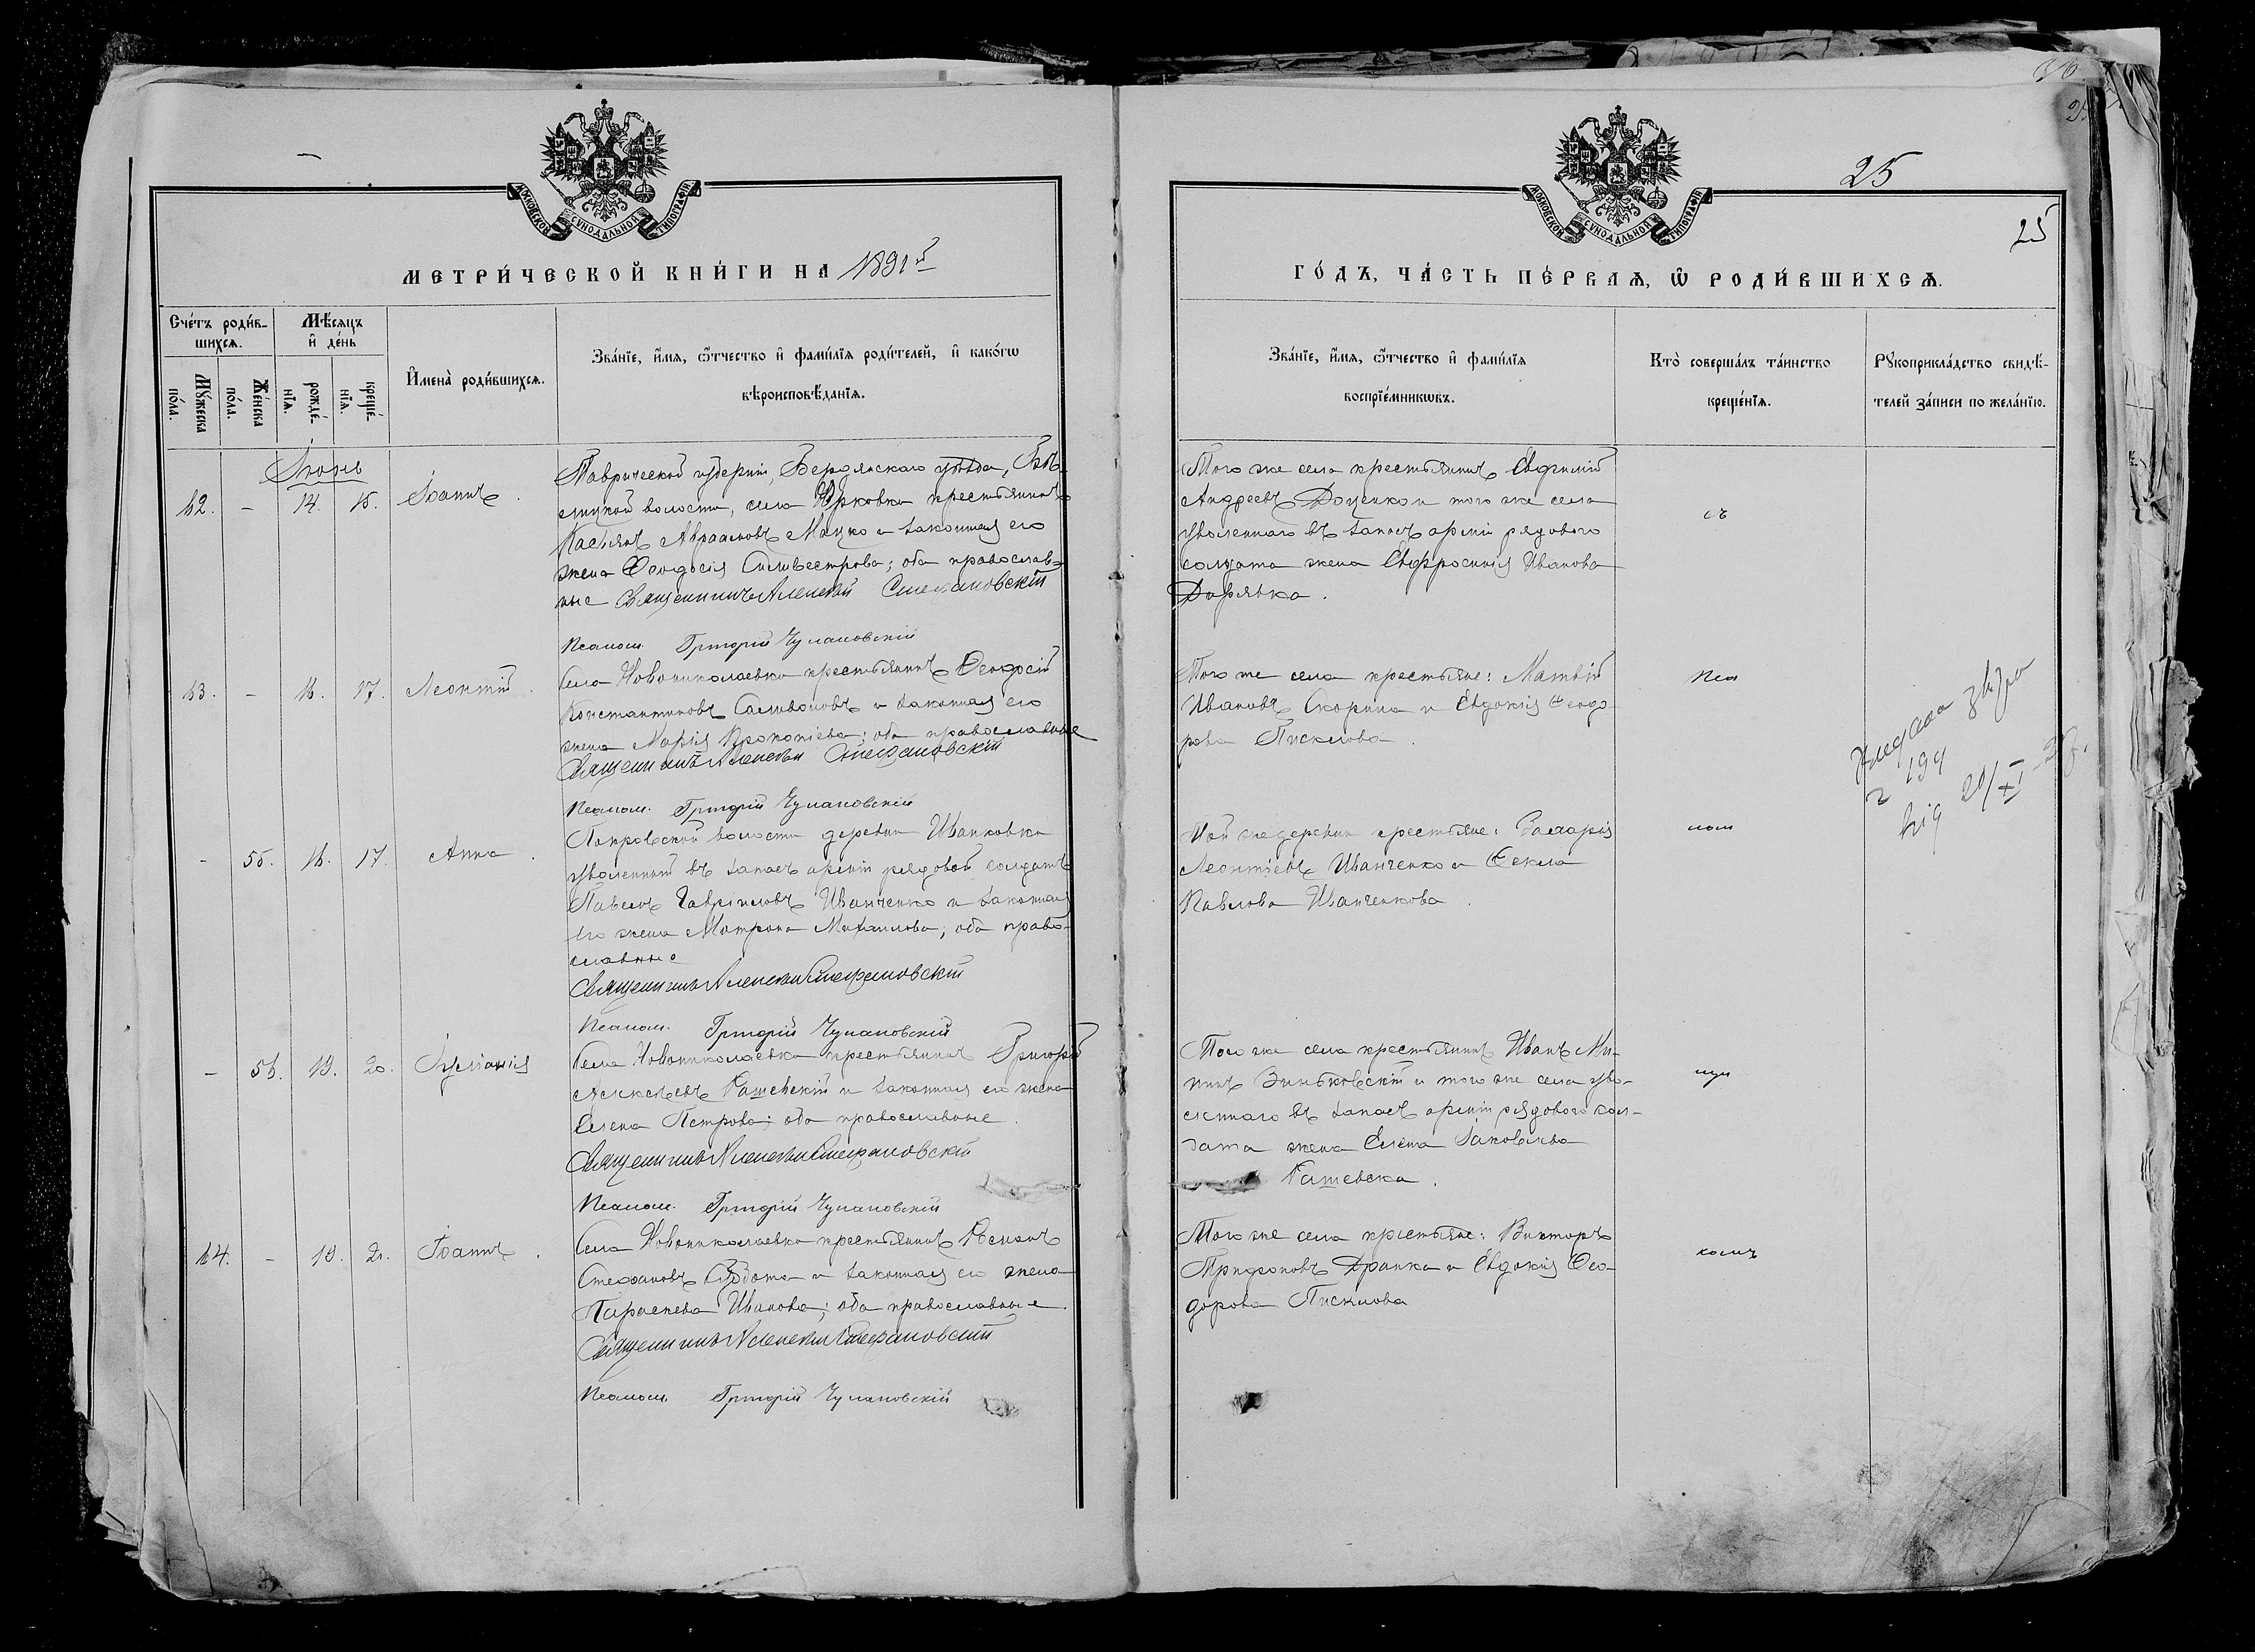 36.
25
25
МОСКОВСКОЙ СѴНОДАЛЬНОЙ ТИПОГРАФІИ
МОСКОВСКОЙ СѴНОДАЛЬНОЙ ТИПОГРАФІИ
МЕТРИ́ЧЕСКОЙ КНИ́ГИ НА 1891й
ГО́ДЪ, ЧА́СТЬ ПЕ́РВАѦ, Ѽ РОДИ́ВШИХСѦ.
Сче́тъ роди́в-
шихсѧ.
Мѣ́сѧцъ
и҆ де́нь
Мꙋ́жеска
по́ла.
Же́нска
по́ла.
рожде́-
нїѧ.
креще́-
нїѧ.
И҆мена̀ роди́вшихсѧ.
Зва́нїе, и҆́мѧ, ѻ҆́тчество и҆ фами́лїѧ роди́телей, и҆ како́гѡ
вѣроисповѣ́данїѧ.
Зва́нїе, и҆́мѧ, ѻ҆́тчество и҆ фами́лїѧ
воспрїе́мникѡвъ.
Кто̀ соверша́лъ та́инство
креще́нїѧ.
Рꙋкоприкла́дство свидѣ́-
телей за́писи по жела́нїю.
Іюнь
62. - 14. 15. Іоаннъ.
Таврической губерніи, Бердянскаго уѣзда,
волости, села Юрковки крестьянинъ
Касьянъ Авраамовъ Мацко и законная его
жена Ѳеодосія Сильвестрова; оба православ-
ные Священникъ Алексѣй Стефановскій
Псалом. Григорій Чулановскій
Того же села крестьянинъ Евѳимій
Андреевъ Доценко и того же села
уволеннаго въ запасъ арміи рядового
солдата жена Евфросинія Иванова
съ
63. - 16. 17. Леонтій.
Села Новониколаевки крестьянинъ Ѳеодосій
Константиновъ Саливоновъ и законная его
жена Марія Прокопіева; оба православные
Священникъ Алексѣй Стефановскій
Псалом. Григорій Чулановскій
Того же села крестьяне: Матвѣй
Ивановъ Скорина и Евдокія Ѳеодо-
рова Писклова.
Пса
- 55. 16. 17. Анна.
Покровской волости деревни Иванковки
уволенный въ запасъ арміи рядовой солдатъ
Павелъ Гавріиловъ Иванченко и законная
его жена Матрона Михаилова; оба право-
славные
Священникъ Алексѣй Стефановскій
Псалом. Григорій Чулановскій
Той же деревни крестьяне: Захарія
Леонтіевъ Иванченко и Ѳекла
Павлова Иванченкова.
лом
- 56. 19. 20. Іуліанія
Села Новониколаевки крестьянинъ Григорій
Алексѣевъ Рашевскій и законная его жена
Елена Петрова; оба православные.
Священникъ Алексѣй Стефановскій
Псалом. Григорій Чулановскій
Того же села крестьянинъ Иванъ Ми-
нинъ Зиньковскій и того же села уво-
леннаго въ запасъ арміи рядового сол-
дата жена Елена Іаковлева
Рашевска.
щи
64. - 19. 20. Іоаннъ.
Села Новониколаевки крестьянинъ Романъ
Стефановъ и законная его жена
Параскева Иванова; оба православные.
Священникъ Алексѣй Стефановскій
Псалом. Григорій Чулановскій
Того же села крестьяне: Викторъ
Трифоновъ Драпка и Евдокія Ѳео-
дорова Писклова
комъ
від 20/XI